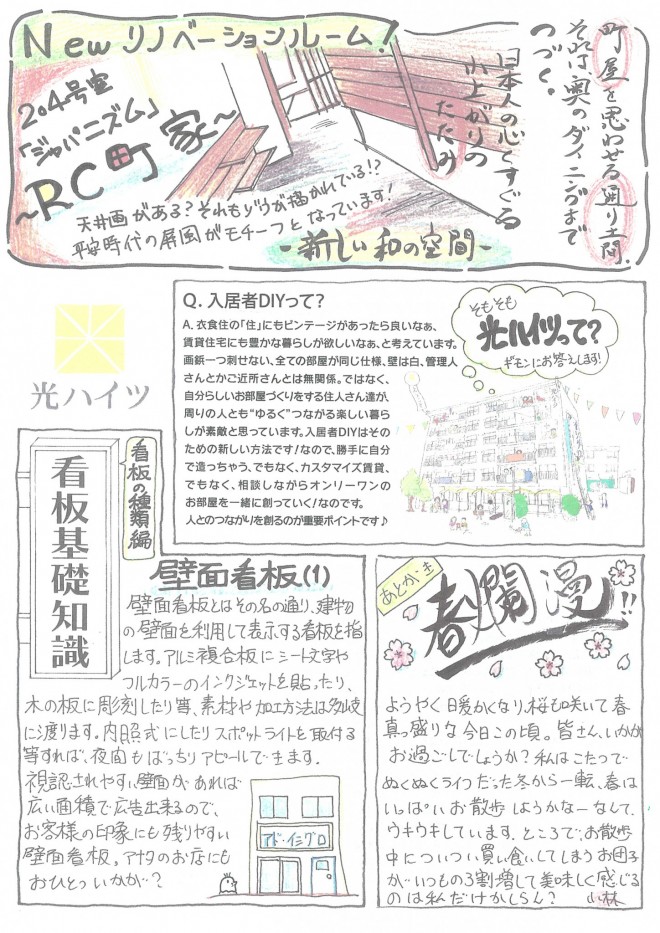 New リノベーションルーム!
町屋を思わせる通り土間。
それは奥のダイニングまで
つづく。
日本人の心をくすぐる
小上がりの
たたみ
204号室
「ジャパニズム」
~RC町家~
天井画がある?それもゾウが描かれている!?
平安時代の屏風がモチーフとなっています!
-新しい和の空間-
光ハイツ
Q. 入居者DIYって?
A. 衣食住の「住」にもビンテージがあったら良いなぁ、
賃貸住宅にも豊かな暮らしが欲しいなぁ、と考えています。
画鋲一つ刺せない、全ての部屋が同じ仕様、壁は白、管理人
さんとかご近所さんとは無関係。ではなく、
自分らしいお部屋づくりをする住人さん達が、
周りの人とも"ゆるぐ"つながる楽しい暮ら
しが素敵と思っています。入居者DIYはその
ための新しい方法です!なので、勝手に自分
で造っちゃう、でもなく、カスタマイズ賃貸、
でもなく、相談しながらオンリーワンの
お部屋を一緒に創っていく!なのです。
人とのつながりを創るのが重要ポイントです♪
そもそも
光ハイツって?
ギモンにお答えします!
看板基礎知識
看板の種類編
壁面看板(1)
壁面看板とはその名の通り、建物
の壁面を利用して表示する看板を指
します。アルミ複合板にシート文字や
フルカラーのインクジェットを貼ったり、
木の板に彫刻したり等、素材や加工方法は多岐
に渡ります。内照式にしたりスポットライトを取付る
等すれば、夜間もばっちりアピールできます。
視認されやすい壁面があれば
広い面積で広告出来るので、
お客様の印象にも残りやすい
壁面看板。アナタのお店にも
おひとついかが?
アド・イシグロ
あとがき
春爛漫!!
ようやく日暖かくなり、桜も咲いて春
真っ盛りな今日この頃。皆さん、いかが
お過ごしでしょうか?私はこたつで
ぬくぬくライフだった冬から一転、春は
いっぱいお散歩しようかなーなんて、
ウキウキしています。ところで、お散歩
中についつい買い食いしてしまうお団子
が、いつもの3割増して美味しく感じる
のは私だけかしらん?
小林